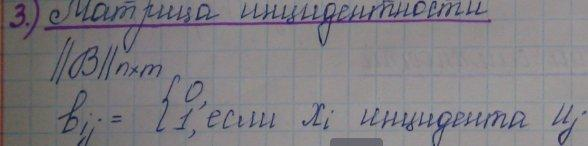 3.) Матрица инцидентности
||B||n×m
bij = {0,
1, если xi инцидента uj